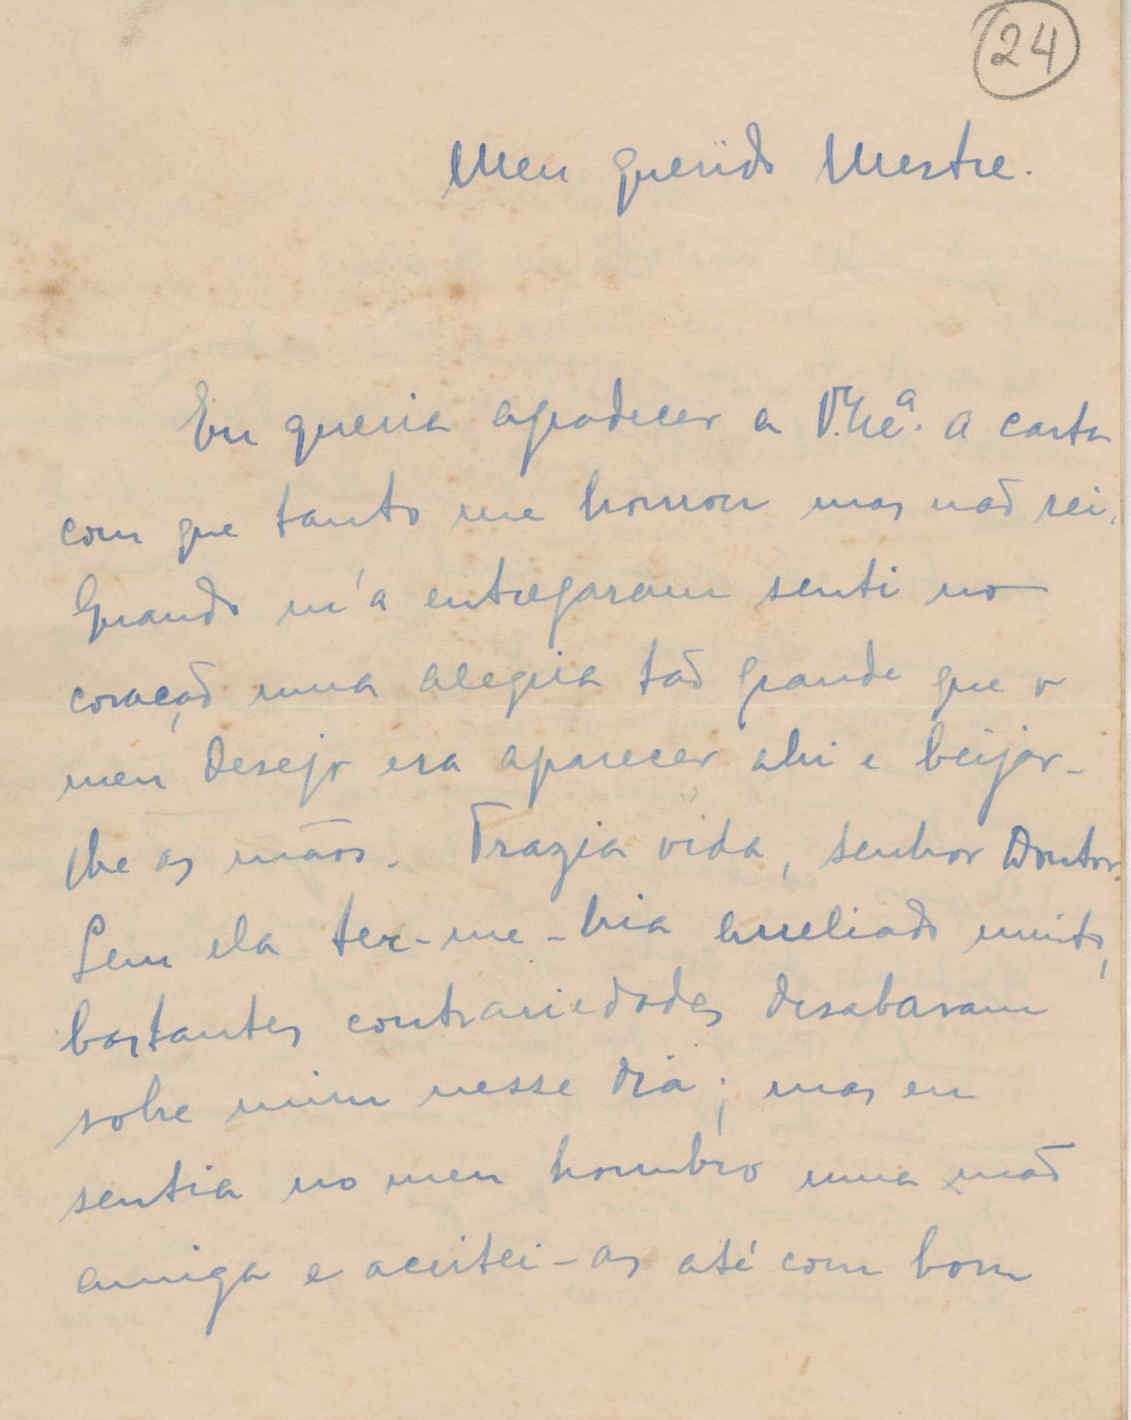 24
Meu querido Mestre.
Eu queria agradecer a V. Exª. a carta
com que tanto me honrou mas não sei.
Quando m'a entregaram senti no
coração uma alegria tão grande que o
meu desejo era aparecer ahi e beijar-
lhe as mãos. Trazia vida, senhor Doutor.
Sem ela ter-me-hia humilhado muito,
bastantes contrariedades desabaram
sobre mim nesse dia; mas eu
sentia no meu hombro uma mão
amiga e aceitei-as até com bom